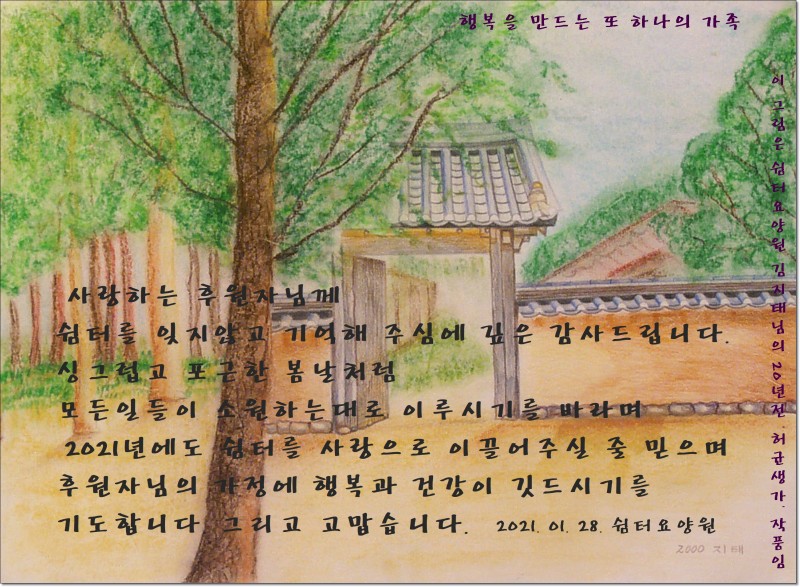 행복을 만드는 또 하나의 가족
이 그림은 쉼터요양원 김지태님의 20년전.허균생가. 작품임
사랑하는 후원자님께
쉼터를 잊지않고 기억해 주심에 깊은 감사드립니다.
싱그럽고 포근한 봄날처럼
모든일들이 소원하는대로 이루시기를 바라며
2021년에도 쉼터를 사랑으로 이끌어주실 줄 믿으며
후원자님의 가정에 행복과 건강이 깃드시기를
기도합니다 그리고 고맙습니다. 2021. 01. 28. 쉼터요양원
2000 지태